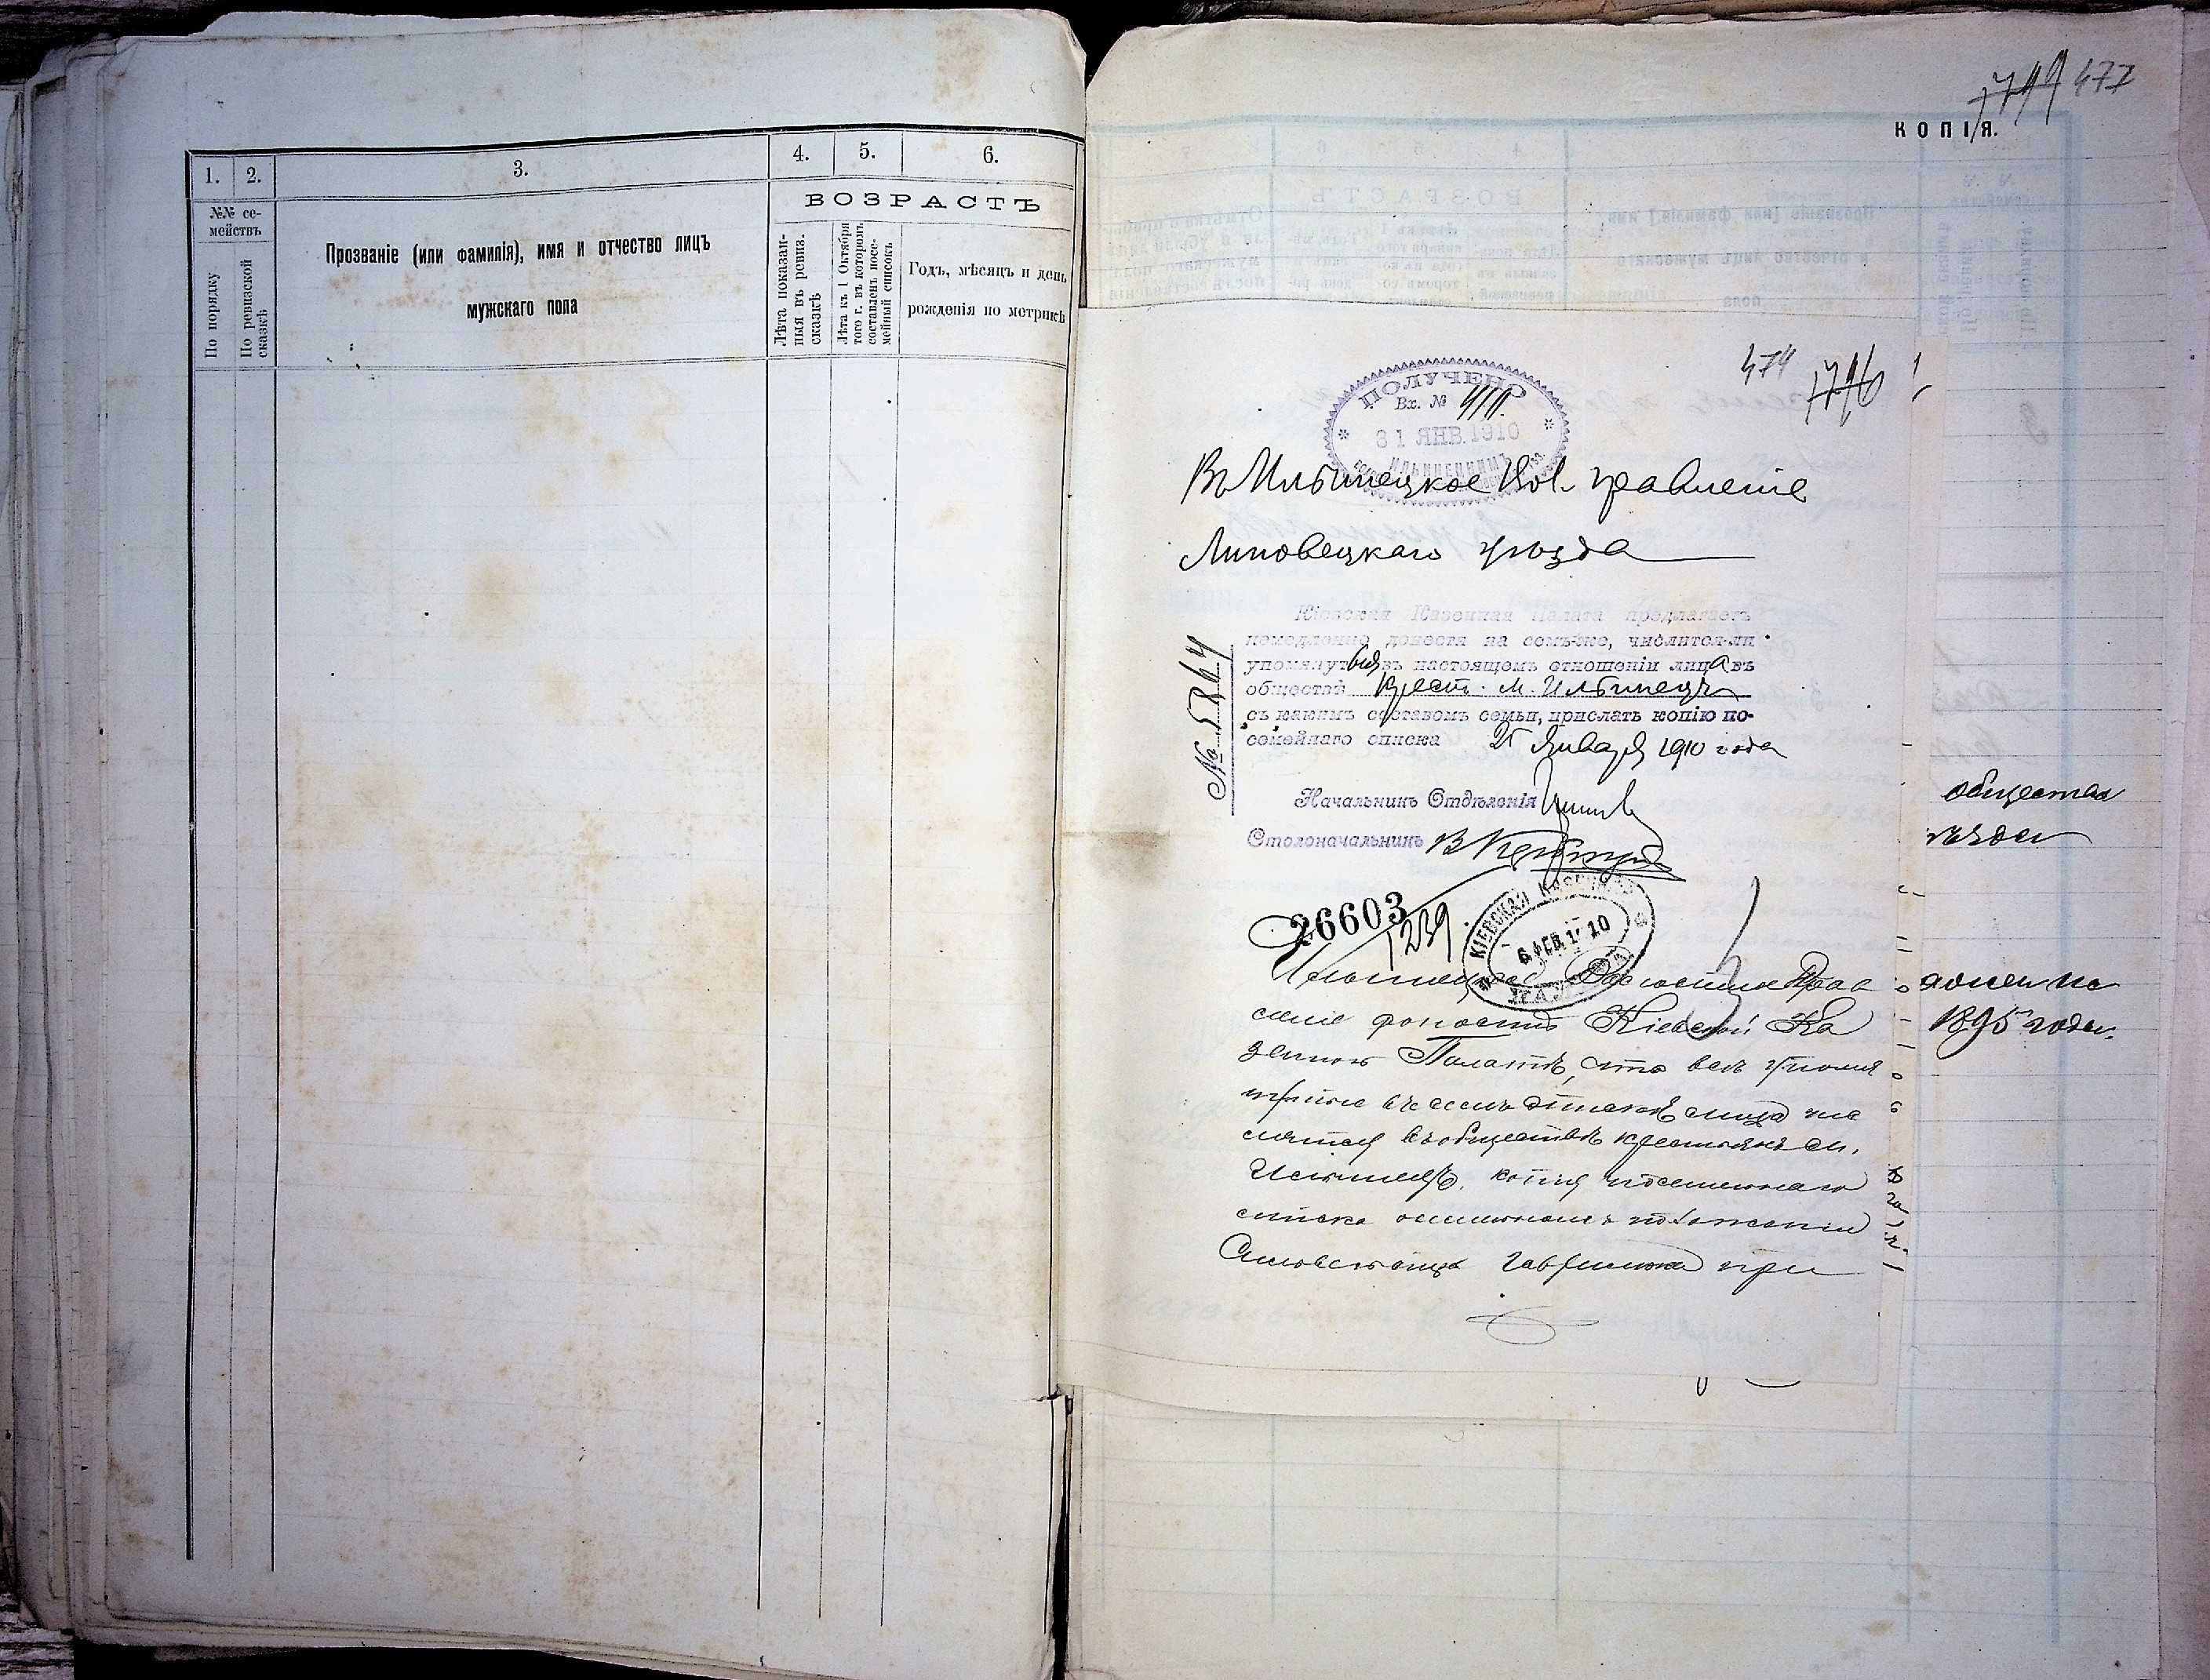 1.
2.
3.
4.
5.
6.
№№ се-
мействъ
По порядку
По ревизской
сказкѣ
Прозваніе (или фамилія), имя и отчество лицъ
мужскаго пола
ВОЗРАСТЪ
Лѣта показан-
ныя въ ревиз.
сказкѣ
Лѣта къ 1 Октября
того г. въ которомъ
составленъ посе-
мейный списокъ
Годъ, мѣсяцъ и день
рожденія по метрикѣ
477
КОПІЯ.
474
ПОЛУЧЕНО
Вх. №
31 ЯНВ. 1910
Въ Ильинецкое Вол. правленіе
Липовецкаго уѣзда
Кіевская Казенная Палата предлагаетъ
немедленно донести на семъ-же, числится-ли
упомянутыя въ настоящемъ отношеніи лица въ
обществѣ крест. м. Ильинецъ
съ какимъ составомъ семьи, прислать копію по-
семейнаго списка 25 Января 1910 года
№ 5864
Начальникъ Отдѣленія
Столоначальникъ В
26603
1239
КІЕВСКАЯ КАЗЕННАЯ
6 ФЕВ. 1910
ПАЛАТА
Ильинецкое Волостное Прав
леніе доноситъ Кіевской Ка
зенной Палатѣ, что всѣ упомя
чис
лятся въ обществѣ крестьянъ м.
Ильинецъ, копія посемейнаго
списка
при
общества
уѣзда
1895 года.